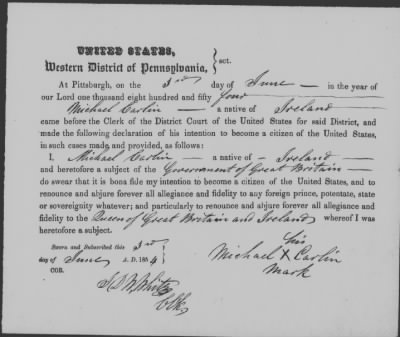 UNITED STATES,
Western District of Pennsylvania, } sct.
At Pittsburgh, on the 3rd day of June in the year of
our Lord one thousand eight hundred and fifty four
Michael Carlin — a native of Ireland
came before the Clerk of the District Court of the United States for said District, and
made the following declaration of his intention to become a citizen of the United States,
in such cases made and provided, as follows:
I, Michael Carlin — a native of — Ireland —
and heretofore a subject of the Government of Great Britain —
do swear that it is bona fide my intention to become a citizen of the United States, and to
renounce and abjure forever all allegiance and fidelity to any foreign prince, potentate, state
or sovereignty whatever; and particularly to renounce and abjure forever all allegiance and
fidelity to the Queen of Great Britain and Ireland, whereof I was
heretofore a subject.
Sworn and Subscribed this 3rd
day of June A. D. 1854
COR.
his
Michael X Carlin
Mark
Clk